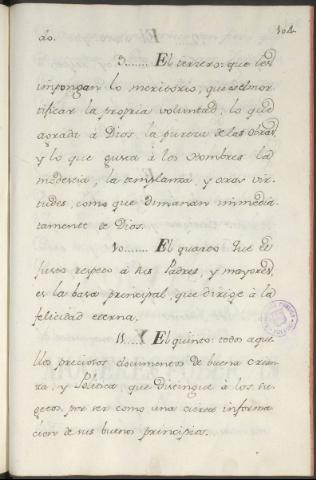 104
do.
9....... El tercero: que les
impongan lo meritorio, que es el mor
tificar la propria voluntad, lo que
agrada á Dios la pureza de las obras,
y lo que gusta á los Hombres la
modestia, la templanza, y otras vir-
tudes, como que dimanan immedia
tamente de Dios.
10....... El quarto: que el
justo respeto á sus Padres, y mayores,
es la basa principal, que dirige á la
felicidad eterna.
11.... El quinto: todo aque
llos preciosos documentos de buena crian
za, y Politica que distingue á los su-
getos, por ser como una cierta informa
cion de sus buenos principios.